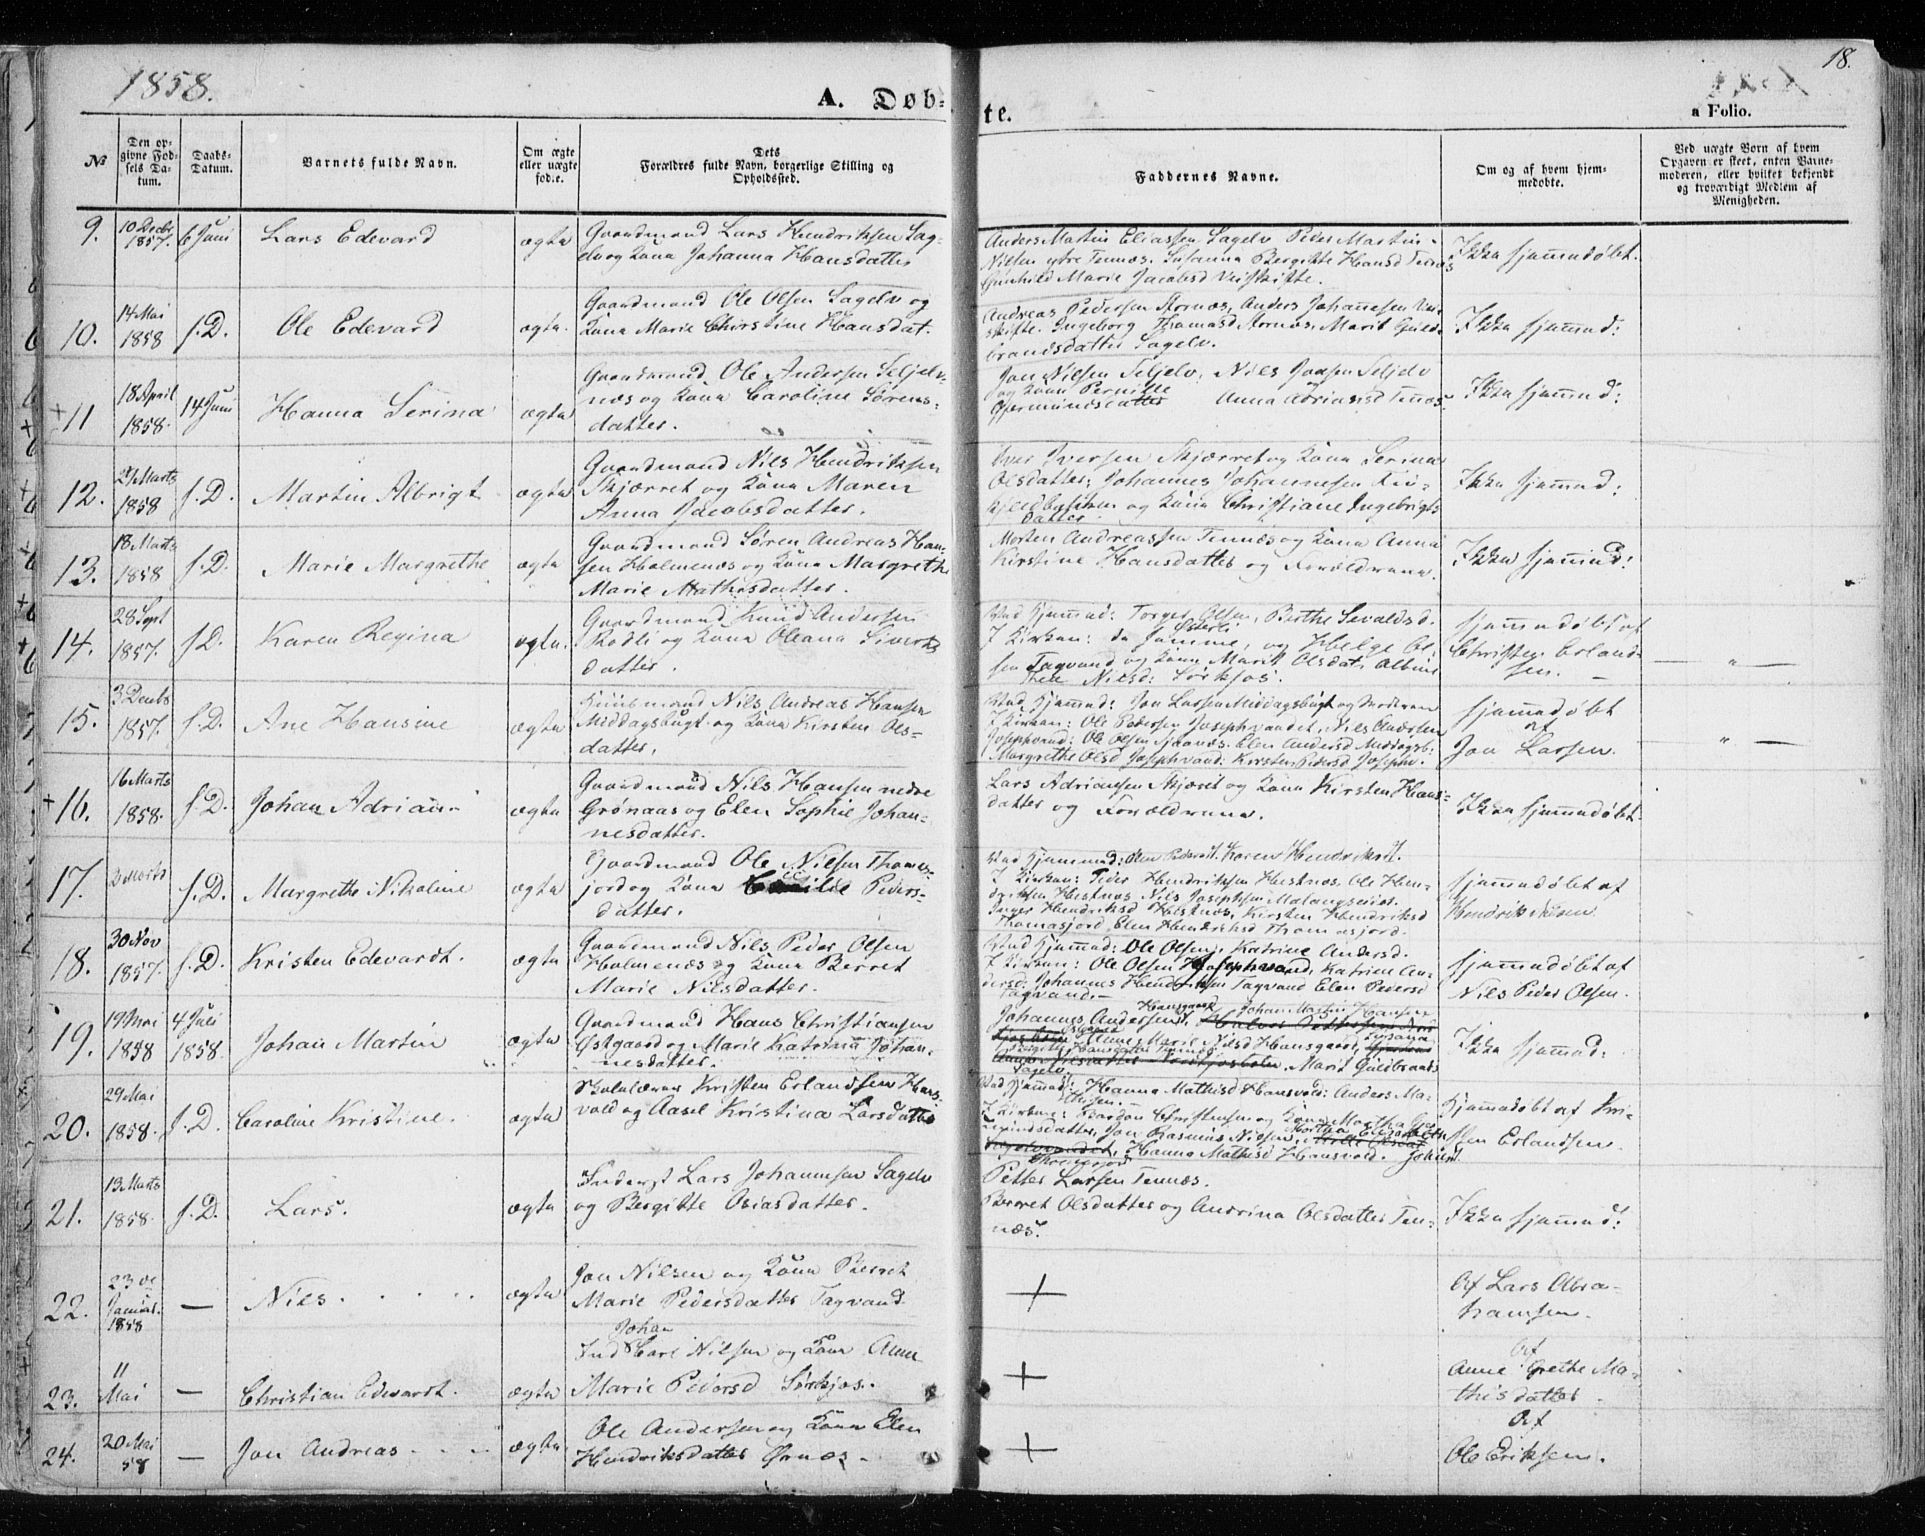 1858.
18.
A. Døb-
te.
a Folio.
№
Den op-
givne Fød-
sels Da-
tum.
Daabs-
Datum.
Barnets fulde Navn.
Om ægte
eller uægte
fød.e.
Dets
Forældres fulde Navn, borgerlige Stilling og
Opholdssted.
Faddernes Navne.
Om og af hvem hjem-
medøbte.
Ved uægte Børn af hvem
Opgaven er skeet, enten Barne-
moderen, eller hvilket bekjendt
og troværdigt Medlem af
Menigheden.
9.
10 Decbr
1857.
6 Juni
Lars Edevard
ægte
Gaardmand Lars Hendriksen Sag-
elv og Kone Johanna Hansdatter
Anders Martin Eliassen Sagelv Peder Martin
Nilsen ytre Tennæs. Susanna Bergitte Hansd Tennæs
Gunhild Marie Jacobsd
Ikke hjemmedøbt.
10.
14 Mai
1858
s. D.
Ole Edevard
ægte.
Gaardmand Ole Olsen Sagelv og
Kone Marie Christine Hansdat.
Andreas Pedersen Stornæs, Anders Johannesen
Ingeborg Thomasd Stornæs. Marit Guld-
brandsdatter Sagelv.
Ikke hjemmed:
+ 11
18 April
1858.
14 Juni
Hanna Serina
ægte
Gaardmand Ole Andersen Seljelv-
næs og Kone Caroline Sørens-
datter.
Jon Nilsen Seljelv, Nils Jonsen Seljelv
og Kone Pernille
Gjermundsdatter Anna Adriansd Tennæs.
Ikke hjemmed:
12.
21 Marts
1858
s. D.
Martin Albrigt
ægte
Gaardmand Nils Hendriksen
Skjærret og Kone Maren
Anna Jacobsdatter.
Iver Iversen Skjærret og Kone Serina
Olsdatter; Johannes Johannesen
og Kone Christiane Ingebrigts
datter
Ikke hjemmed:
13.
18 Marts
1858
s. D.
Marie Margrethe
ægte
Gaardmand Søren Andreas Han-
sen Holmenæs og Kone Margrethe
Marie Mathisdatter.
Morten Andreassen Tennæs og Kone Anna
Kirstine Hansdatter og Forældrene.
Ikke hjemmed:
14.
28 Sept
1857.
s. D.
Karen Regina
ægte.
Gaardmand Knud Andersen
Rodli og Kone Oleana Siverts
datter.
Ved Hjemmed: Torger Olsen, Berthe Sevaldsd.
Østerli
I Kirken: de samme, og Helge Ol-
sen Tagvand og Kone Marit Olsdat;
Nilsd: Sørkjos.
hjemmedøbt af
Christen Erland-
sen.
— „ —
15.
3 Decbr
1857.
s. D.
Ane Hansine
ægte
Huusmand Nils Andreas Hansen
Middagsbugt og Kone Kirsten Ols-
datter.
Ved Hjemmed: Jon Larsen Middagsbugt og Moderen
I Kirken: Ole Pedersen Josephvandet, Nils Andersen
Josephvand: Ole Olsen Elen Andersd Middagsb:
Margrethe Olsd Josephvand: Kirsten Pedersd Josephv.
hjemmedøbt
af
Jon Larsen.
„ —
+ 16.
16 Marts
1858.
s. D.
Johan Adrian
ægte
Gaardmand Nils Hansen nedre
Grønaas og Elen Sophie Johan-
nesdatter.
Lars Adriansen Skjæret og Kone Kirsten Hans-
datter og Forældrene.
Ikke hjemmedøbt.
17.
3 Marts
s. D.
Margrethe Nikoline
ægte
Gaardmand Ole Nilsen Thomas-
jord og Kone Peders-
datter.
Ved Hjemmed: Elen Pedersd. Karen Hendriksd.
I Kirken: Peder Hendriksen Hestnæs, Ole Hen-
driksen Hestnæs Nils Josephsen Malangseidet.
Inger Hendriksd Hestnæs, Kirsten Hendriksd
Thomasjord, Elen Hendriksd Thomasjord.
hjemmedøbt af
Hendrik Nilsen.
18.
30 Nov
1857.
s. D.
Kristen Edevardt.
ægte
Gaardmand Nils Peder Olsen
Holmenæs og Kone Berret
Marie Nilsdatter.
Ved Hjemmed: Ole Olsen, Katrine Andersd.
I Kirken: Ole Olsen Josephvand, Katrine An-
dersd: Johannes Hendriksen Tagvand Elen Pedersd
Tagvand.
hjemmedøbt af
Nils Peder Olsen.
19.
19 Mai
1858
4 Juli
1858.
Johan Martin
ægte
Gaardmand Hans Christiansen
Østgaard og Marie Katrina Johan-
nesdatter.
Hansgaard Johan Martin Hansen
Johannes Andersen,
Anne Marie Nilsd Hansgaard,
Marit Guldbrandsd
Sagelv.
Ikke hjemmed:
20.
29 Mai
1858.
s. D.
Caroline Kristine.
ægte
Skolelærer Kristen Erlandsen Hans-
vold og Aasel Kristina Larsdatter
Ved Hjemmed: Hanna Mathisd Hansvold: Anders Ma-
thisen.
I Kirken: Bardon Christensen og Kone Martha
Jon Rasmus Nilsen,
Hanna Mathisd Hansvold.
Hjemmedøbt af Kri-
sten Erlandsen.
21.
13 Marts
1858.
s. D.
Lars.
ægte
Inderst Lars Johannesen Sagelv
og Bergitte Osiasdatter.
Petter Larsen Tennæs.
Berret Olsdatter og Andrina Olsdatter Ten-
næs.
Ikke hjemmed:
22.
23 de
Januar.
1858
—
Nils. . . . .
ægte
Jon Nilsen og Kone Berret
Marie Pedersdatter Tagvand
+
Af Lars Abra-
hamsen.
23.
11
Mai
—
Christian Edevardt.
ægte
Johan
Ind Carl Nilsen og Kone Anne
Marie Pedersd Sørkjos.
+
Af
Anne Grethe Ma-
thisdatter.
24.
20 Mai
58
—
Jon Andreas . . .
ægte.
Ole Andersen og Kone Elen
Hendriksdatter Ørnæs.
+
Af
Ole Eriksen.